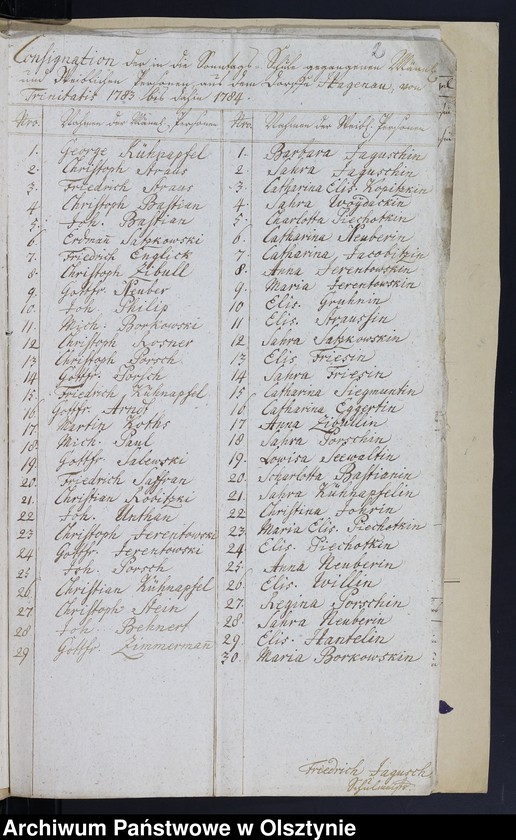 2
Consignation der in die Sonntags-Schule gegangenen Männl.
und Weiblichen Personen aus dem Dorffe Hagenau, von
Trinitatis 1783 bis dahin 1784.
Nro. Nahmen der Männl. Personen Nro. Nahmen der Weibl. Personen
1. George Kühnapfel 1. Barbara Jaguschin
2. Christoph Straus 2. Sahra Jaguschin
3. Friedrich Straus 3. Catharina Elis. Kopitzkin
4. Christoph Bastian 4. Sahra Woydackin
5. Joh. Bastian 5. Charlotta Piechotkin
6. Erdman Satzkowski 6. Catharina Neuberin
7. Friedrich Englick 7. Catharina Jacobitzin
8. Christoph Zibull 8. Anna Ferentowskin
9. Gottfr. Neuber 9. Maria Ferentowskin
10. Joh. Philip 10. Elis. Gruhnin
11. Mich. Borkowski 11. Elis. Straussin
12. Christoph Rosner 12. Sahra Satzkowskin
13. Christoph Porsch 13. Elis Friesin
14. Gottfr. Porsch 14. Sahra Friesin
15. Friedrich Kühnapfel 15. Catharina Siegmuntin
16. Gottfr. Arndt 16. Catharina Eggertin
17. Martin Koths 17. Anna Zibullin
18. Mich. Paul 18. Sahra Porschin
19. Gottfr. Salewski 19. Lowisa Seewaltin
20. Friedrich Saffran 20. Scharlotta Bastianin
21. Christian Kobitzki 21. Sahra Kühnapfelin
22. Joh. Unthan 22. Christina Johrin
23. Christoph Ferentowski 23. Maria Elis. Piechotkin
24. Gottfr. Ferentowski 24. Elis. Piechotkin
25. Joh. Porsch 25. Anna Neuberin
26. Christian Kühnapfel 26. Elis. Willin
27. Christoph Stein 27. Regina Porschin
28. Joh. Behnert 28. Sahra Neuberin
29. Gottfr. Zimmerman 29. Elis. Hantelin
30. Maria Borkowskin
Friedrich Jagusch
Schulmstr.
Archiwum Państwowe w Olsztynie